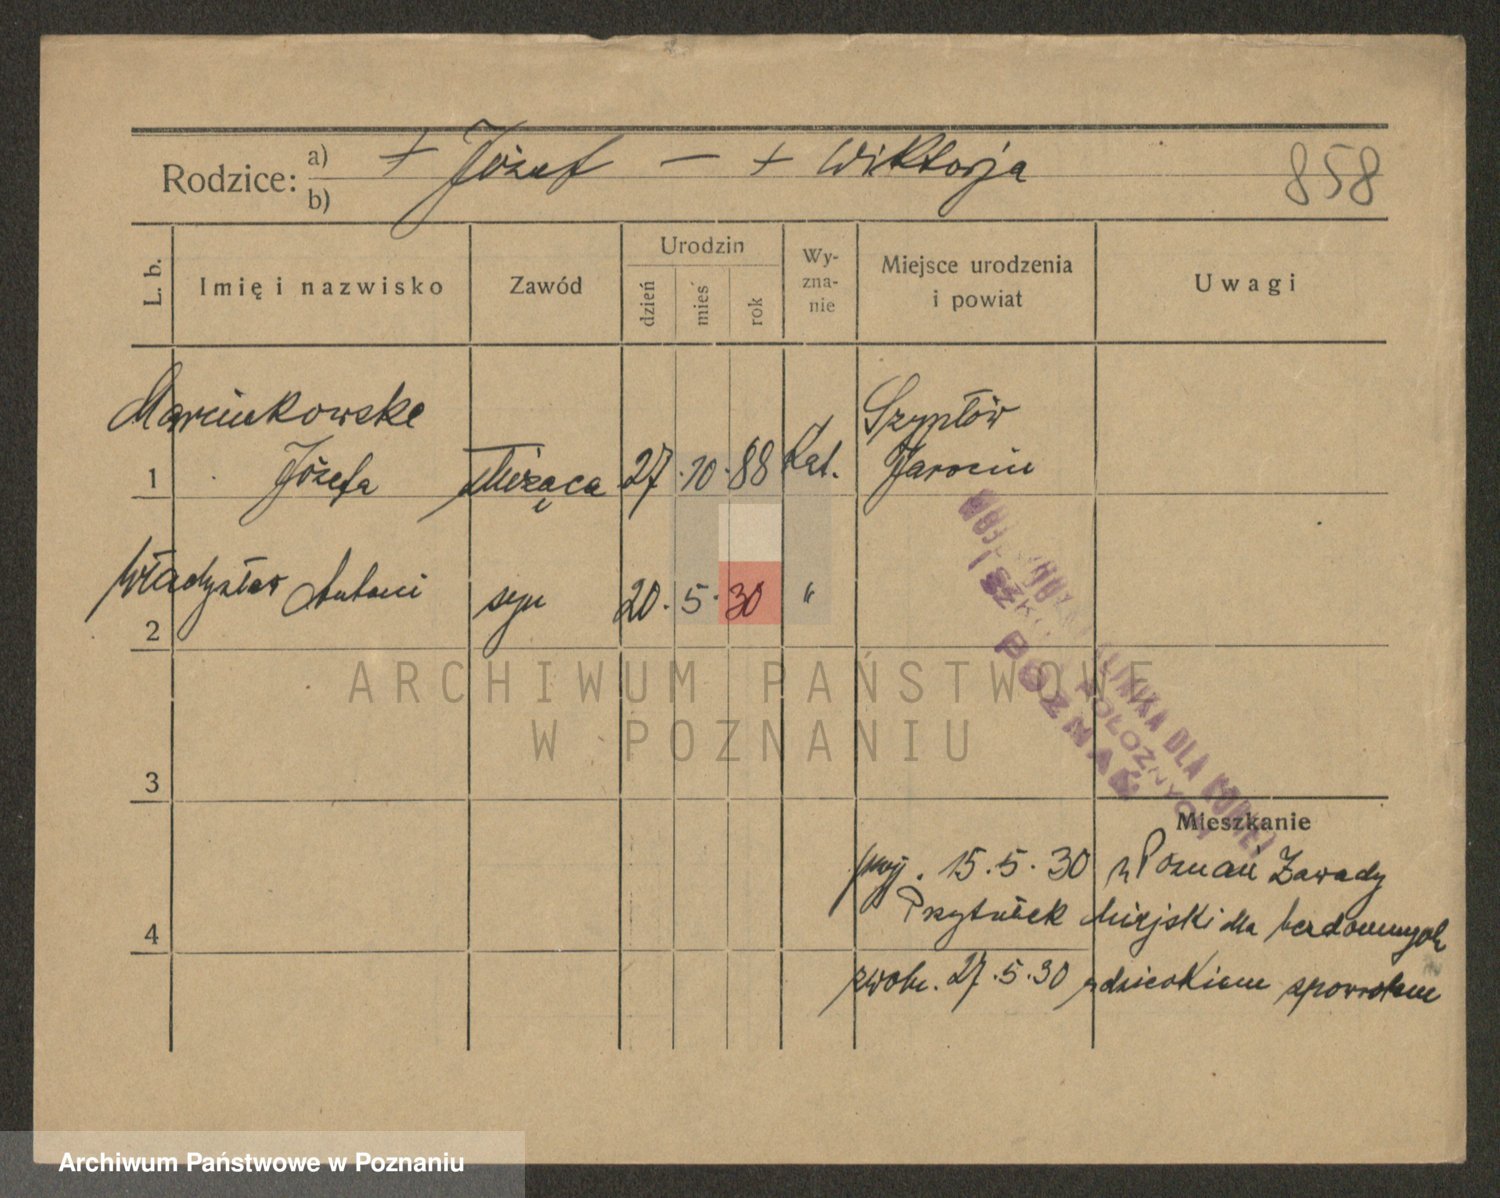 Rodzice: a) + Józef — + Wiktorja
b)
858
L. b.
Imię i nazwisko
Zawód
Urodzin
dzień
mieś
rok
Wy-
zna-
nie
Miejsce urodzenia
i powiat
Uwagi
Marcinkowska
Józefa
1
służąca
27 · 10 · 88
Kat.
Szypłów
Jarocin
Władysław Antoni
2
syn
20 · 5 · 30
"
3
4
KLINIKA DLA KOBIET
POŁOŻNYCH
POZNAŃ
Mieszkanie
przyj. 15 · 5 · 30 z Poznań Zawady
Przytułek Miejski dla bezdomnych
zwoln. 27 · 5 · 30 z dzieckiem spowrotem
ARCHIWUM PAŃSTWOWE
W POZNANIU
Archiwum Państwowe w Poznaniu